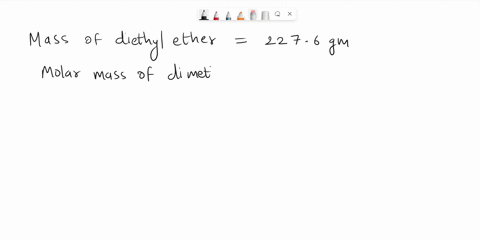 Mass of diethyl ether = 227.6 gm
Molar mass of dimeti